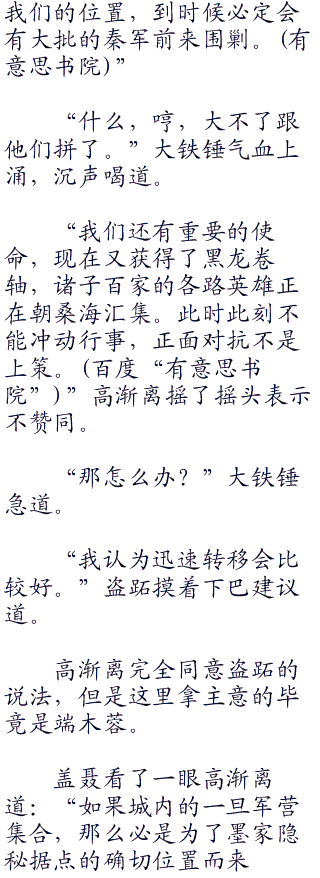 我们的位置，到时候必定会
有大批的秦军前来围剿。（有
意思书院）”
“什么，哼，大不了跟
他们拼了。”大铁锤气血上
涌，沉声喝道。
“我们还有重要的使
命，现在又获得了黑龙卷
轴，诸子百家的各路英雄正
在朝桑海汇集。此时此刻不
能冲动行事，正面对抗不是
上策。（百度“有意思书
院”）”高渐离摇了摇头表示
不赞同。
“那怎么办？”大铁锤
急道。
“我认为迅速转移会比
较好。”盗跖摸着下巴建议
道。
高渐离完全同意盗跖的
说法，但是这里拿主意的毕
竟是端木蓉。
盖聂看了一眼高渐离
道：“如果城内的一旦军营
集合，那么必是为了墨家隐
秘据点的确切位置而来